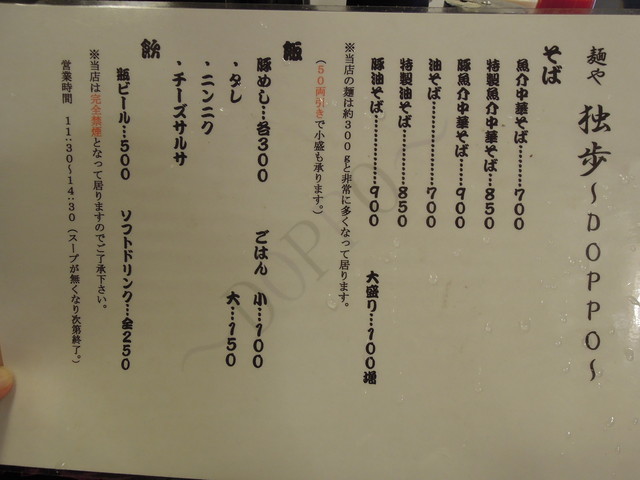 麺や 独歩～DOPPO～
そば
魚介中華そば…………700
特製魚介中華そば……850
豚魚介中華そば………900
油そば…………………700
特製油そば……………850
豚油そば………………900 大盛り…100増
※当店の麺は約300gと非常に多くなって居ります。
(50両引きで小盛も承ります。)
飯
豚めし…各300 ごはん 小…100
・タレ 大…150
・ニンニク
・チーズサルサ
飲
瓶ビール…500 ソフトドリンク…全250
※当店は完全禁煙となって居りますのでご了承下さい。
営業時間 11:30～14:30(スープが無くなり次第終了。)
～DOPPO～